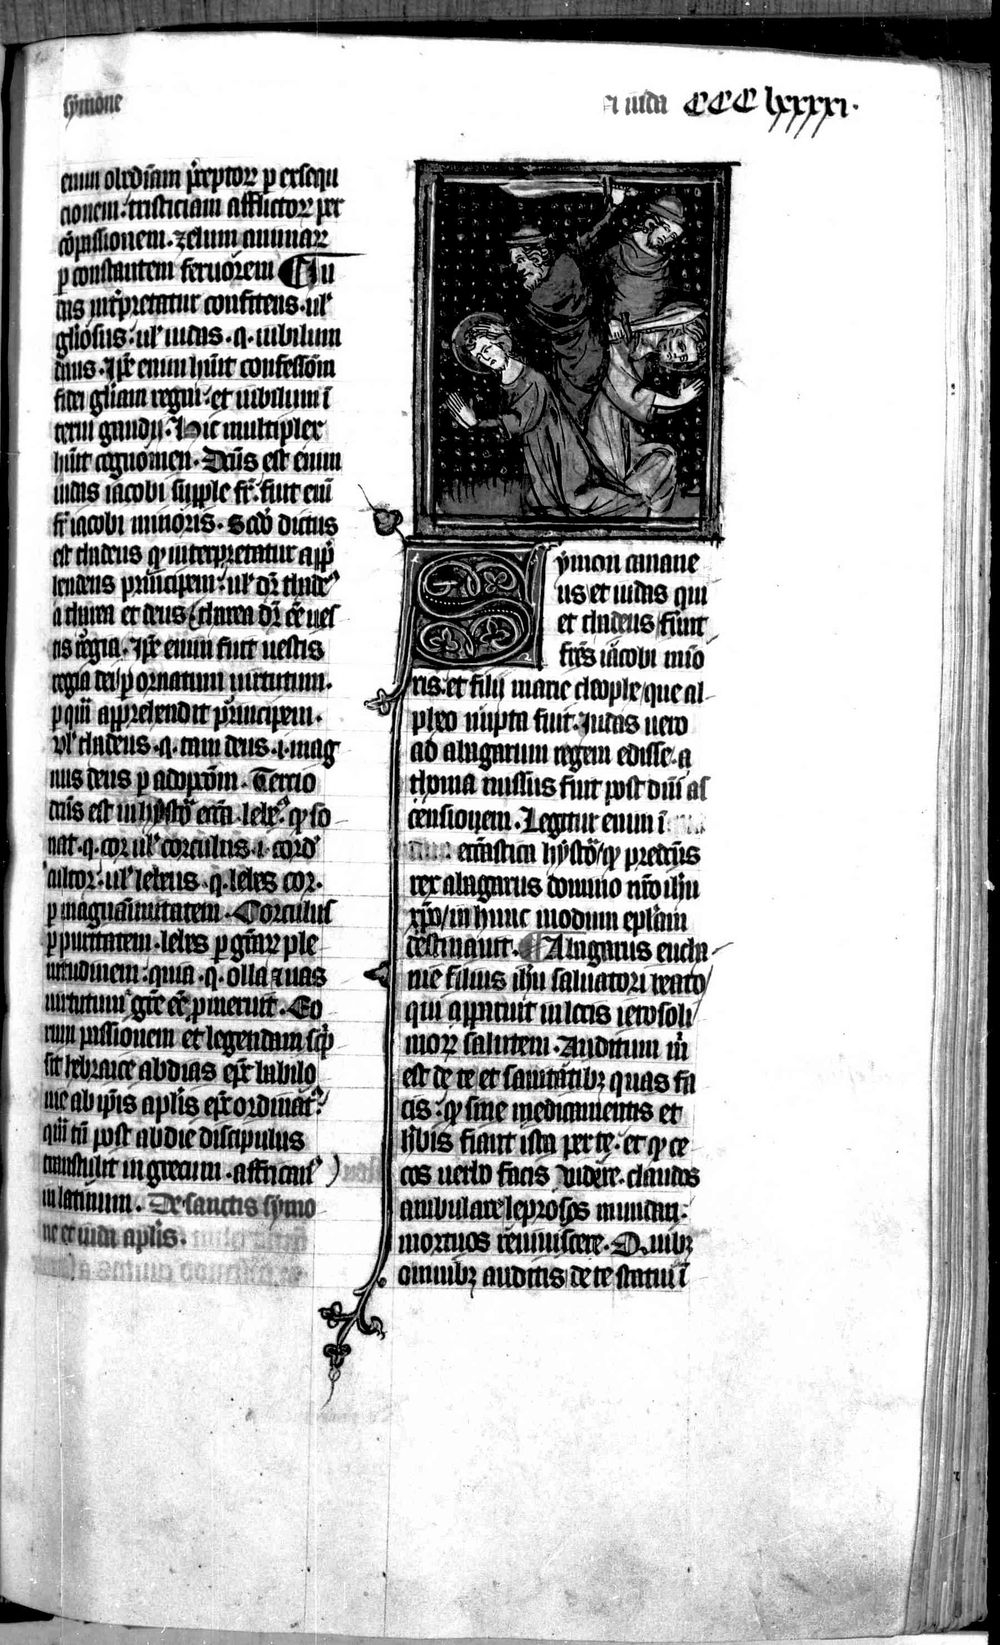 symone
et iuda CCC lxxxxi.
enim obediẽciam p̃ceptoꝝ p exsequ
cionem. tristiciam afflictoꝝ per
cõpassionem. zelum animaꝝ
p constantem feruorem ¶ Iu
das int̃pretatur confitens. ul̃
gl̃iosus. ul̃ iudas .q. iubilum
dans. Ip̃e enim hũit confessiõm
fidei gl̃iam regni. et iubilum ĩ
terni gaudij. Hic multiplex
hũit cognomen. Dc̃us est enim
iudas iacobi supple fr̃. fuit enĩ
fr̃ iacobi minoris. Scd̃o dictus
est thadeus qͥ interpretatur app̃
hendens principem. ul̃ dr̃ thade᾿
a thadea et deus / thadea dr̃ eẽ ues
tis regia. Ip̃e enim fuit uestis
regia dei p ornatum uirtutum.
p quã apprehendit principem.
Vl̃ thadeus .q. tam deus .i. mag
nus deus p adopciõm. Tercio
dc̃us est in hystor̃ ecc̃a lebe᾿. qͥ so
nat .q. cor ul̃ corculus .i. cord᾿
cultor. ul̃ lebeus .q. lebes cor.
p magnãimitatem. Corculus
p puritatem. lebes p gr̃aꝝ ple
nitudinem. quia .q. olla ⁊ uas
uirtutum ⁊ gr̃e eẽ pmeruit. Eo
rum passionem et legendam sc̃p
sit hebraice abdias ep̃c babilo
nie ab ip̃is aplĩs ep̃c ordinat᾿.
quã tñ post abdie discipulus
transtulit in grecum. affrican᾿
in latinum. De sanctis symo
ne et iuda aplĩs.
Symon canane
us et iudas qui
et thadeus fuũt
fr̃es iacobi mĩo
ris. et filij marie cleophe / que al
pheo nupta fuit. Iudas uero
ad abagarum regem edisse a
thoma missus fuit post dñi as
censionem. Legitur enim ĩ
ecc̃iastica hystor̃ / qͥ predc̃us
rex abagarus domino nr̃o ihũ
xp̃o / in hunc modum ep̃lam
destinauit. ¶ Abagarus eucha
nie filius ihũ saluatori beato
qui apparuit in locis ierosoli
moꝝ salutem. Auditum m̃
est de te et sanitatibꝫ quas fa
cis. qͥ sine medicamentis et
h̃bis fiant ista per te. et qͥ ce
cos uerbo facis uidere. claudos
ambulare leprosos mundari.
mortuos reuiuiscere. Quibꝫ
omnibꝫ auditis de te statui ĩ